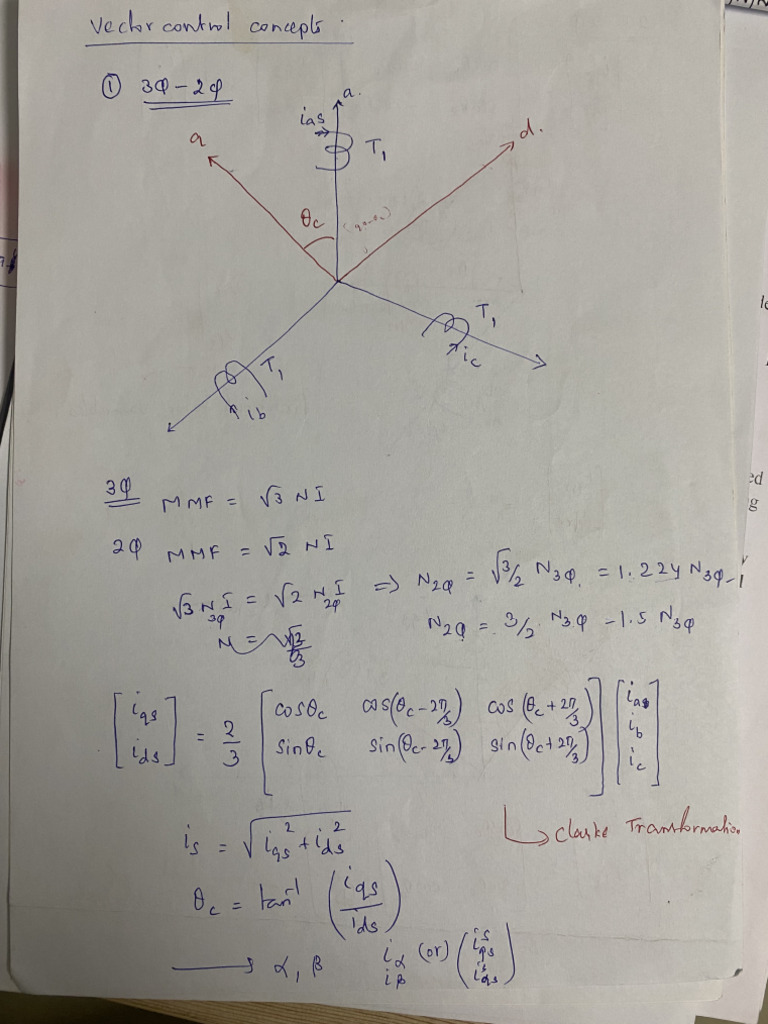 Vector control concepts.
① 3Φ - 2Φ
a.
ias
T1
q
d.
θc
(90-θc)
T1
ic
T1
ib
3Φ MMF = √3 NI
2Φ MMF = √2 NI
√3 N3Φ I = √2 N2Φ I ⇒ N2Φ = √3/2 N3Φ. = 1.224 N3Φ-1
N = √2/3
N2Φ = 3/2 N3Φ - 1.5 N3Φ
[iqs ids] = 2/3 [cosθc cos(θc-2π/3) cos(θc+2π/3) sinθc sin(θc-2π/3) sin(θc+2π/3)] [ias ib ic]
↳ Clarke Transformation
is = √iqs² + ids²
θc = tan⁻¹ (iqs/ids)
⟶ α, β iα iβ (or)